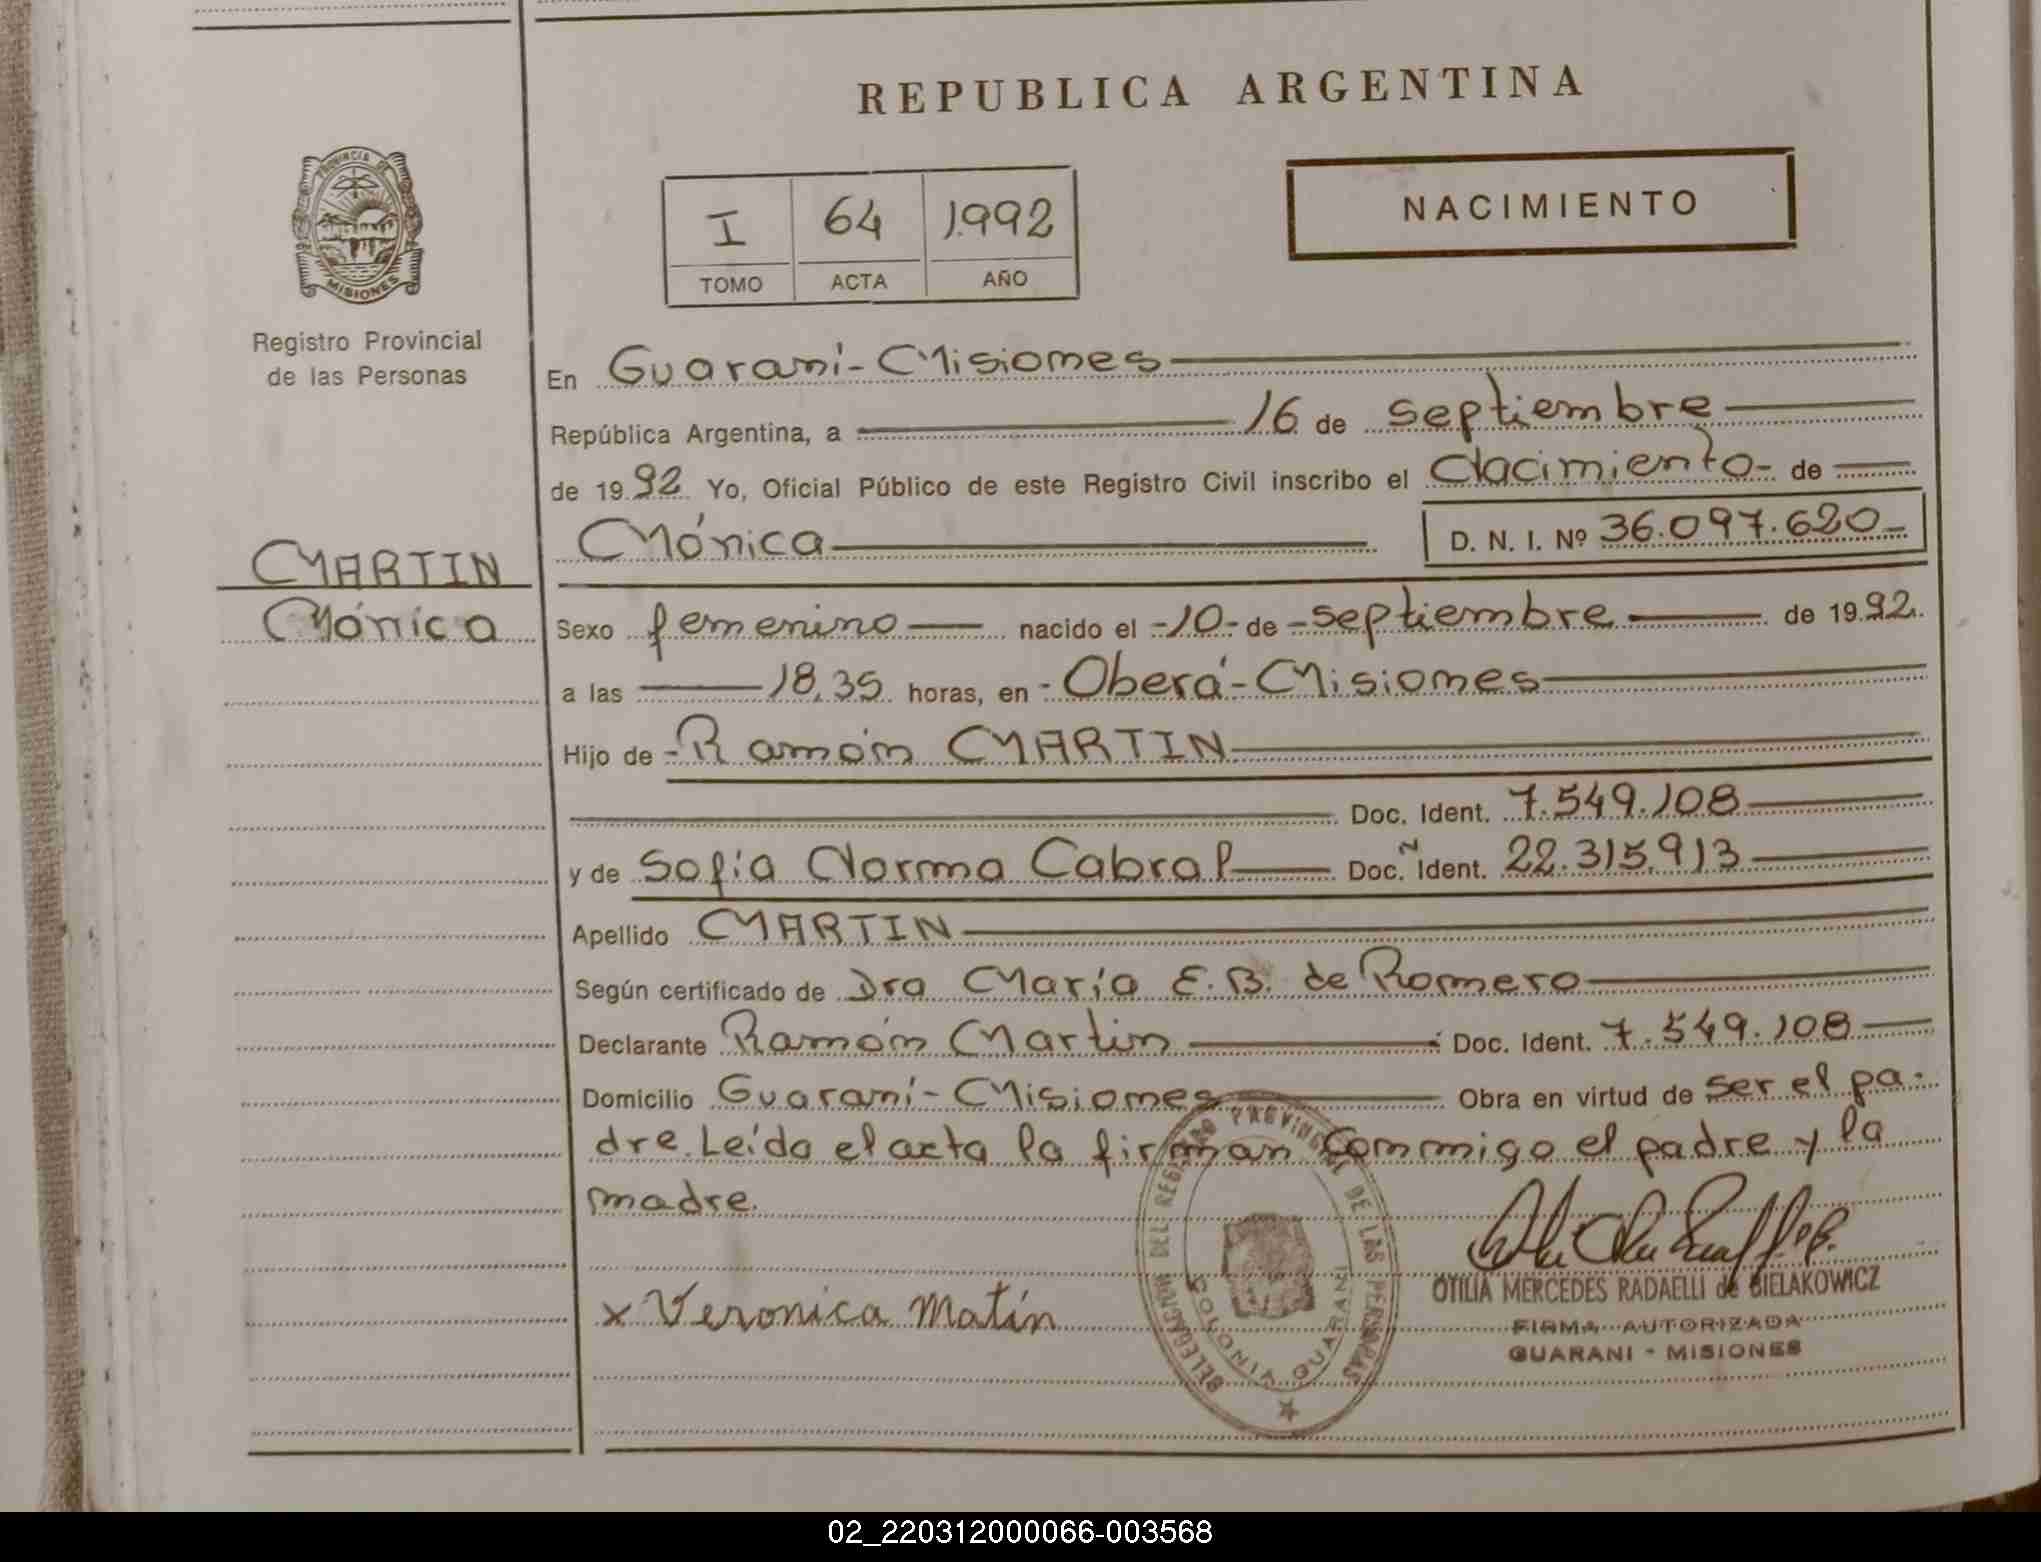 REPUBLICA ARGENTINA
PROVINCIA DE MISIONES
Registro Provincial
de las Personas
I 64 1992
TOMO ACTA AÑO
NACIMIENTO
En Guaraní - Misiones
República Argentina, a 16 de septiembre
de 1992 Yo, Oficial Público de este Registro Civil inscribo el Nacimiento - de
Mónica D. N. I. Nº 36.097.620
MARTIN
Mónica
Sexo femenino nacido el -10- de - septiembre de 1992.
a las 18,35 horas, en - Oberá - Misiones
Hijo de - Ramón MARTIN
Doc. Ident. 7.549.108
y de Sofía Norma Cabral Doc. Ident. 22.315.913
Apellido MARTIN
Según certificado de Dra María E. B. de Romero
Declarante Ramón Martin Doc. Ident. 7.549.108
Domicilio Guaraní - Misiones Obra en virtud de ser el pa-
dre. Leído el acta la firman conmigo el padre y la
madre.
x Veronica Matín
DELEGACION DEL REGISTRO PROVINCIAL DE LAS PERSONAS
COLONIA GUARANI
OTILIA MERCEDES RADAELLI de BIELAKOWICZ
FIRMA AUTORIZADA
GUARANI - MISIONES
02_220312000066-003568